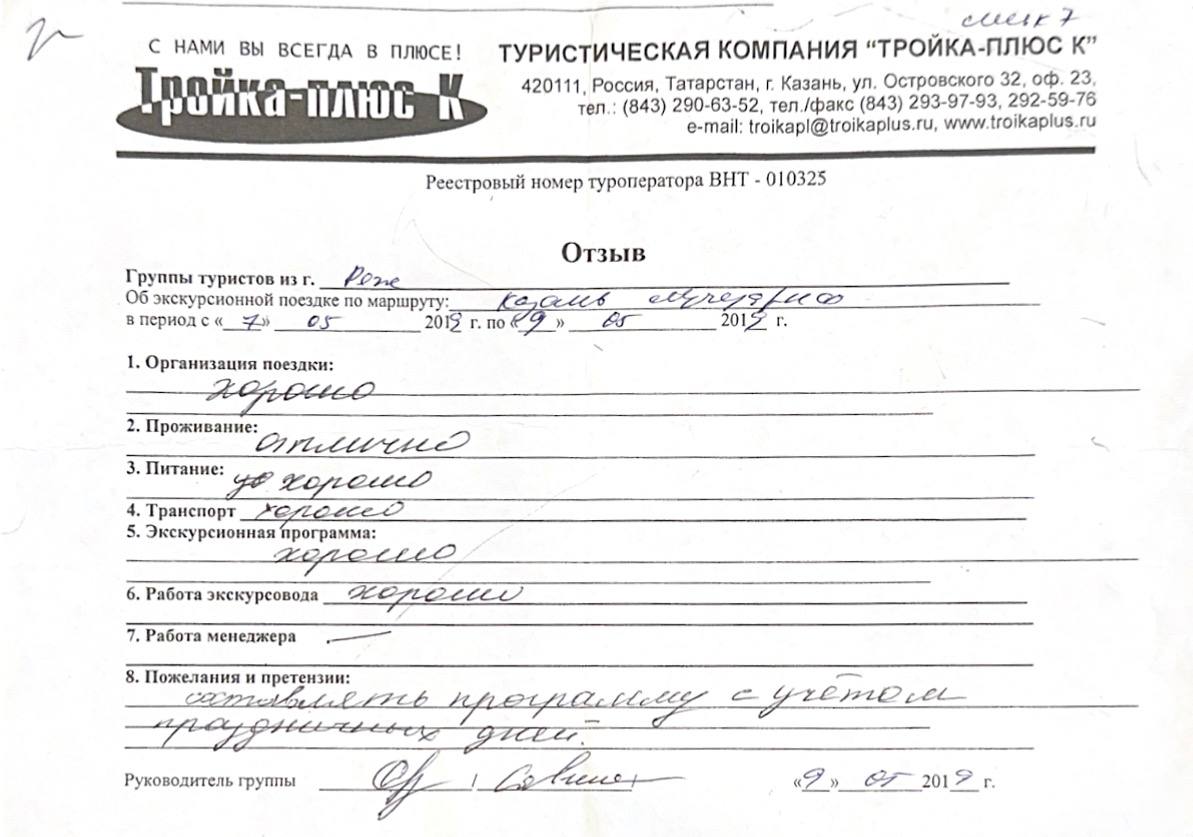 С НАМИ ВЫ ВСЕГДА В ПЛЮСЕ!
Тройка-плюс К
ТУРИСТИЧЕСКАЯ КОМПАНИЯ “ТРОЙКА-ПЛЮС К”
420111, Россия, Татарстан, г. Казань, ул. Островского 32, оф. 23,
тел.: (843) 290-63-52, тел./факс (843) 293-97-93, 292-59-76
e-mail: troikapl@troikaplus.ru, www.troikaplus.ru
Реестровый номер туроператора ВНТ - 010325
Отзыв
Группы туристов из г. Реж
Об экскурсионной поездке по маршруту: Казань
в период с «7» 05 2019 г. по «9» 05 2019 г.
1. Организация поездки:
хорошо
2. Проживание:
отлично
3. Питание:
хорошо
4. Транспорт хорошо
5. Экскурсионная программа:
хорошо
6. Работа экскурсовода хорошо
7. Работа менеджера —
8. Пожелания и претензии:
составлять программу с учётом
праздничных дней.
Руководитель группы «9» 05 2019 г.